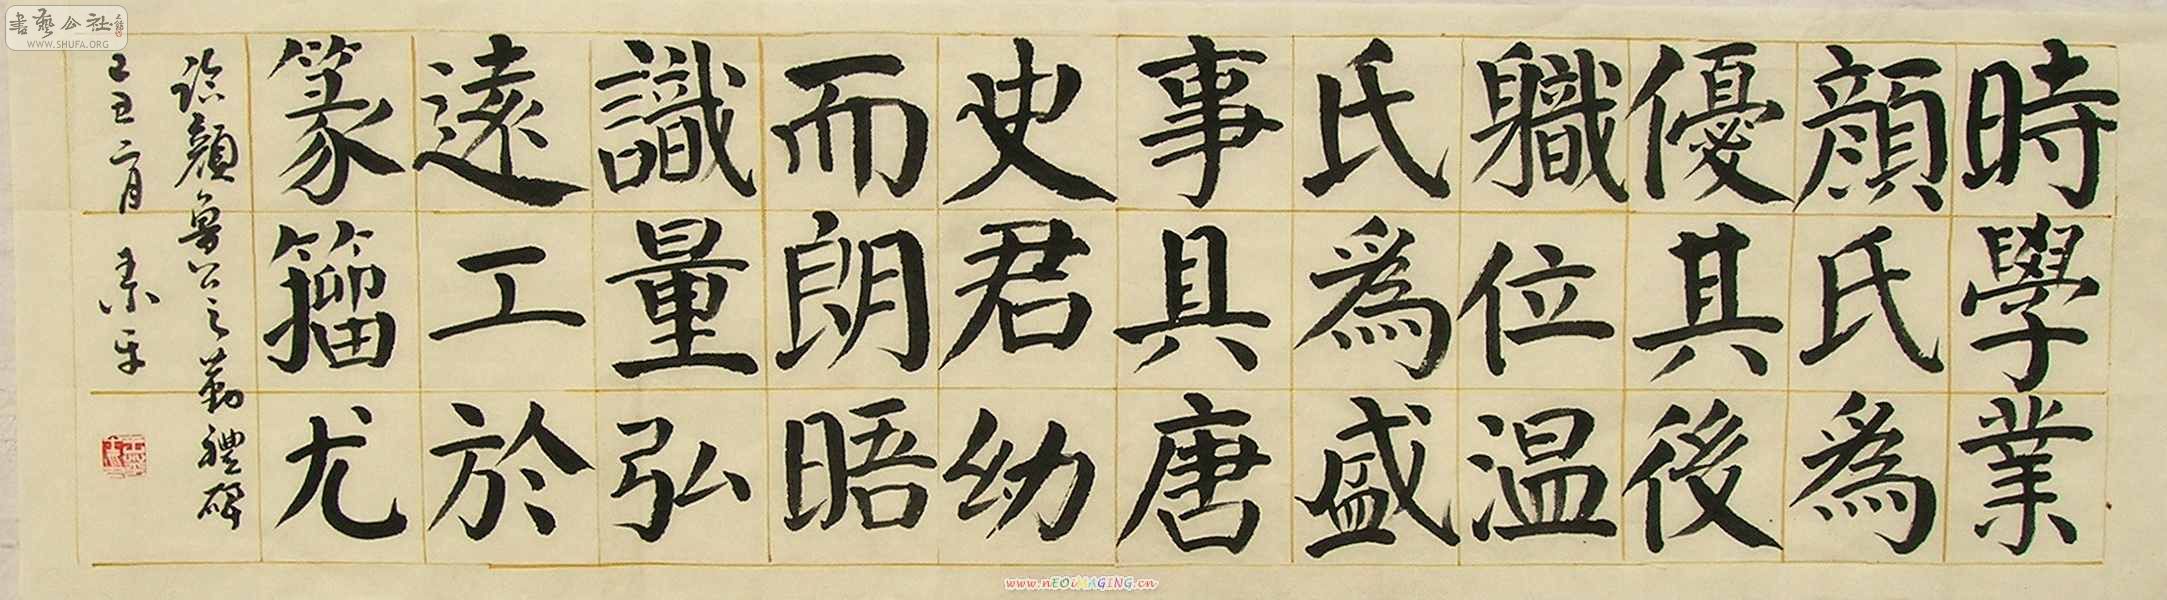 時學業
顏氏為
優其後
職位温
氏為盛
事具唐
史君幼
而朗晤
識量弘
遠工於
篆籀尤
臨顏魯公之勤禮碑
己丑二月 素平
書藝公社
WWW.SHUFA.ORG
www.nEOiMAGING.cn